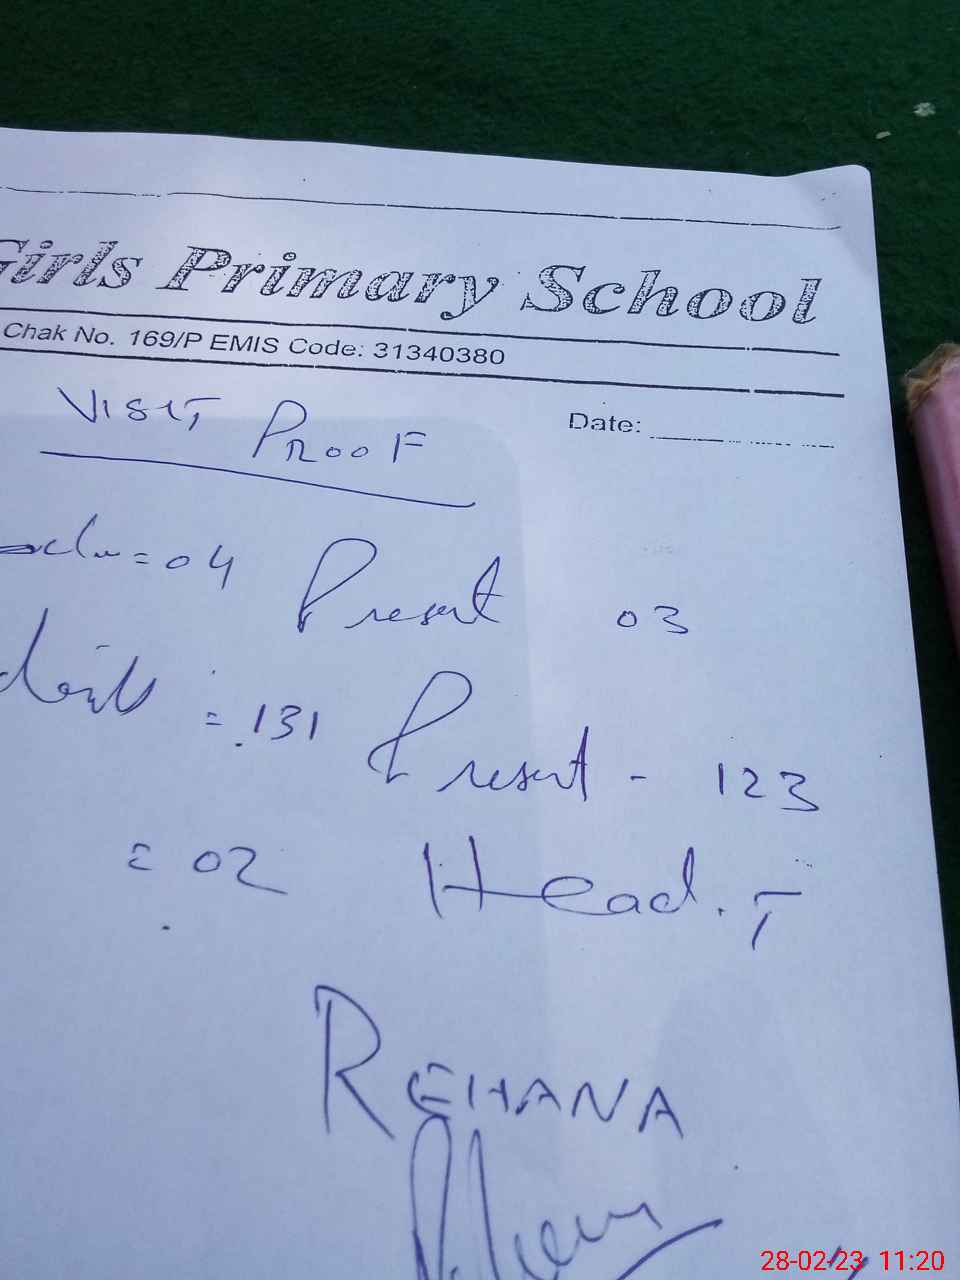 Girls Primary School
Chak No. 169/P EMIS Code: 31340380
Date:
VISIT PROOF
= 04 Present 03
= 131 Present - 123
= 02 Head. T
REHANA
28-02-23 11:20